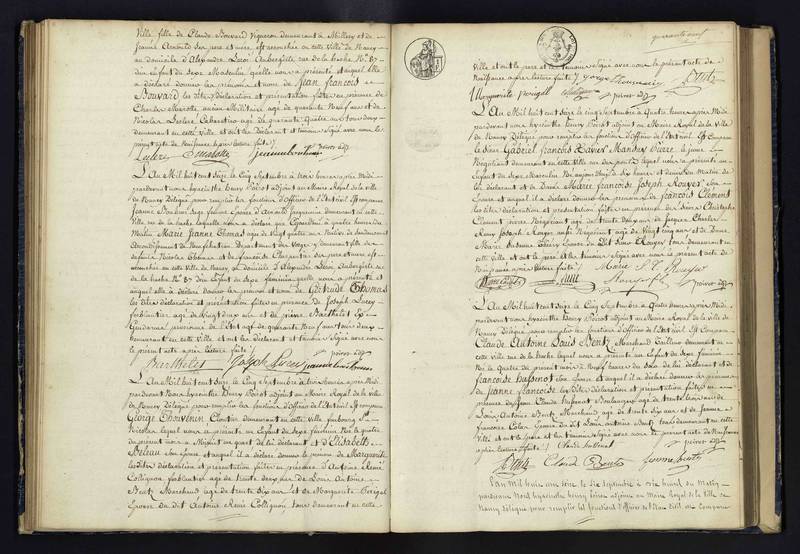 Ville, fille de Claude Bouvard Vigneron demeurant à Millery et de
Jeanne Arnould Ses pere et mere, est accouchée en cette Ville de Nancy
au domicile d'Alexandre Leroi Aubergiste rue de la hache No. 87
d'un Enfant du Sexe Masculin quelle nous a présenté et auquel elle
a déclaré donner les prénoms et nom de Jean françois
Bouvard les dites déclaration et présentation faites en présence de
Charles Mariotte ancien Militaire agé de quarante Neuf ans et de
Nicolas Leclere Cabaretier agé de quarante quatre ans tous deux
demeurant en cette Ville, et ont les déclarant et témoins Signé avec nous le
présent acte de Naissance après lecture faite
Leclere
L'an Mil huit cent Seize le Cinq Septembre à trois heures après Midi
pardevant nous hyacinthe henry Poirot adjoint au Maire Royal de la Ville
de Nancy délégué pour remplir les fonctions d'officier de l'Etat Civil est comparu
Jeanne
matin Marie Jeanne Thomas agée de vingt quatre ans Native de
arrondissement de Neufchateau Département des Vosges y demeurant fille de
défunt Nicolas Thomas et de françoise Charpentier Ses pere et mere est
accouchée en cette Ville de Nancy au domicile d'Alexandre Leroi Aubergiste rue
de la hache No. 87 d'un Enfant du Sexe féminin quelle nous a présenté et
auquel elle a déclaré donner les prénom et nom de Gertrude Thomas
les dites déclaration et présentation faites en présence de Joseph Lurey
ferblantier agé de vingt deux ans et de pierre Barthelet Ex
Gendarme pensionné de l'Etat agé de quarante Neuf ans tous deux
demeurant en cette Ville et ont les déclarant et témoins Signé avec nous
le présent acte après lecture faite
Barthelet Joseph Lurey
L'an Mil huit cent Seize le Cinq Septembre à trois heures après Midi
pardevant Nous hyacinthe henry Poirot adjoint au Maire Royal de la Ville
de Nancy délégué pour remplir les fonctions d'officier de l'Etat Civil est comparu
George Thouvenin Cloutier demeurant en cette Ville faubourg St.
Nicolas lequel nous a présenté un Enfant du Sexe féminin Né le quatre
du présent mois à Minuit un quart de lui déclarant et d'Elisabeth
Beleau Son épouse et auquel il a déclaré donner le prénom de Marguerite
les dites déclaration et présentation faites en présence d'Antoine Remi
Collignon ferblantier agé de trente deux ans de Louis Antoine
Bentz Marchand agé de trente Six ans et de Marguerite Perigal
Epouse du dit Antoine Remi Collignon tous demeurant en cette
quarante neuf
Ville et ont le pere et les témoins Signé avec nous le présent acte de
Naissance après lecture faite
Marguerite Perigal
L'an Mil huit cent Seize le Cinq Septembre à Quatre heures après Midi
pardevant nous hyacinthe henry Poirot adjoint au Maire Royal de la Ville
de Nancy délégué pour remplir les fonctions d'officier de l'Etat Civil est Comparu
le Sieur Gabriel françois Xavier Mandex Pierre le jeune
Négociant demeurant en cette Ville rue des ponts lequel nous a présenté un
Enfant du Sexe Masculin Né aujourd'hui à Six heures et demie du Matin de
lui déclarant et de Dame Marie françoise Joseph Rouyer Son
Epouse et auquel il a déclaré donner les prénoms de françois Clément
les dites déclaration et présentation faites en présence du Sieur Christophe
Clement Pierre Négociant agé de trente deux ans de Jacques Charles
Remy Joseph Rouyer aussi Négociant agé de vingt cinq ans et de Dame
Marie
cette Ville, et ont le pere et les témoins Signé avec nous le présent acte de
Naissance après lecture faite
L'an Mil huit cent Seize le Cinq Septembre à Quatre heures après Midi
pardevant nous hyacinthe henry Poirot adjoint au Maire Royal de la Ville de
Nancy délégué pour remplir les fonctions d'officier de l'Etat Civil est Comparu
Claude Antoine Louis Bentz Marchand Tailleur demeurant en
cette Ville rue de la hache lequel nous a présenté un Enfant du Sexe féminin
Né le Quatre du présent mois à Neuf heures du Soir de lui déclarant et de
françoise hussenot Son Epouse et auquel il a déclaré donner les prénoms
de Jeanne françoise les dites déclaration et présentation faites en
présence de Jean Claude hussenot Boulanger agé de trente trois ans de
Louis Antoine Bentz Marchand agé de trente Six ans et de Jeanne
françoise Colas Epouse du dit Louis Antoine Bentz tous demeurant en cette
Ville et ont le pere et les témoins Signé avec nous le présent acte de Naissance
après lecture faite
Claude Bentz
L'an Mil huit cent seize le Six Septembre à onze heures du Matin
pardevant Nous hyacinthe henry Poirot adjoint au Maire Royal de la Ville de
Nancy délégué pour remplir les fonctions d'officier de l'Etat Civil est Comparu